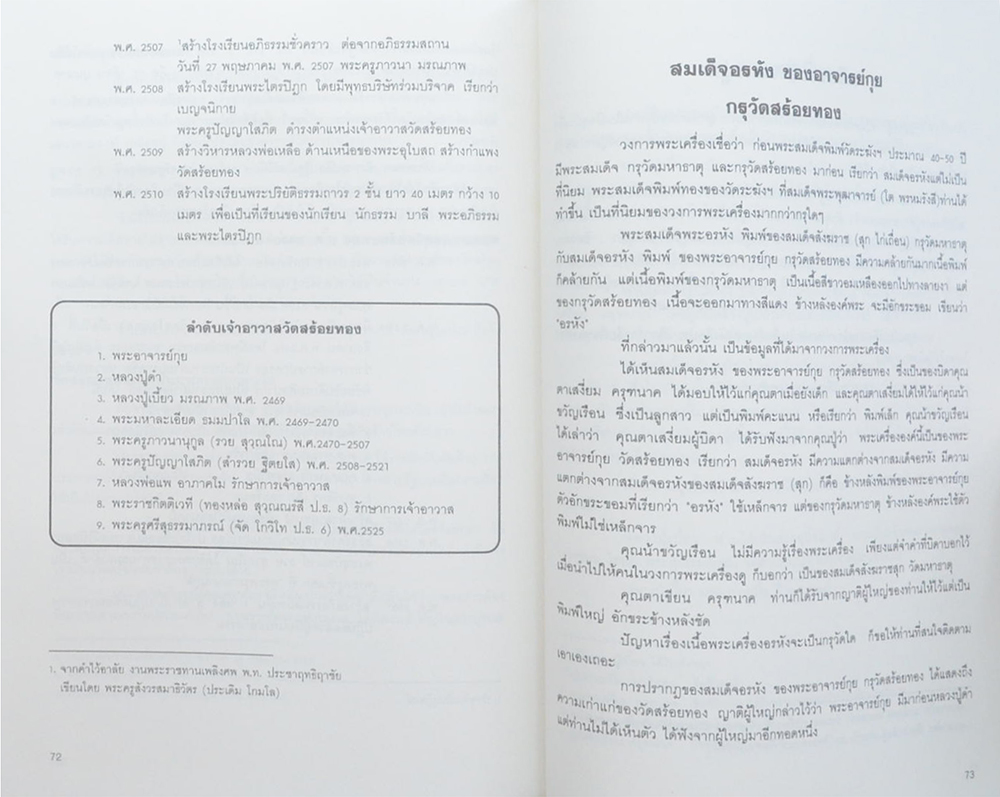 พ.ศ. 2507 ¹สร้างโรงเรียนอภิธรรมชั่วคราว ต่อจากอภิธรรมสถาน
วันที่ 27 พฤษภาคม พ.ศ. 2507 พระครูภาวนา มรณภาพ
พ.ศ. 2508 สร้างโรงเรียนพระไตรปิฎก โดยมีพุทธบริษัทร่วมบริจาค เรียกว่า
เบญจนิกาย
พระครูปัญญาโสภิต ดำรงตำแหน่งเจ้าอาวาสวัดสร้อยทอง
พ.ศ. 2509 สร้างวิหารหลวงพ่อเหลือ ด้านเหนือของพระอุโบสถ สร้างกำแพง
วัดสร้อยทอง
พ.ศ. 2510 สร้างโรงเรียนพระปริยัติธรรมถาวร 2 ชั้น ยาว 40 เมตร กว้าง 10
เมตร เพื่อเป็นที่เรียนของนักเรียน นักธรรม บาลี พระอภิธรรม
และพระไตรปิฎก
ลำดับเจ้าอาวาสวัดสร้อยทอง
1. พระอาจารย์กุย
2. หลวงปู่ดำ
3. หลวงปู่เบี้ยว มรณภาพ พ.ศ. 2469
4. พระมหาละเอียด ธมมปาโล พ.ศ. 2469-2470
5. พระครูภาวนานุกูล (รวย สุวณโณ) พ.ศ.2470-2507
6. พระครูปัญญาโสภิต (สำรวย ฐิตยโส) พ.ศ. 2508-2521
7. หลวงพ่อแพ อาภาคโม รักษาการเจ้าอาวาส
8. พระราชกิตติเวที (ทองหล่อ สุวุณณรํสี ป.ธ. 8) รักษาการเจ้าอาวาส
9. พระครูศรีสุธรรมาภรณ์ (จัด โกวิโท ป.ธ. 6) พ.ศ.2525
1. จากคำไว้อาลัย งานพระราชทานเพลิงศพ พ.ท. ประชาฤทธิฤาชัย
เขียนโดย พระครูสังวรสมาธิวัตร (ประเดิม โกมโล)
72
สมเด็จอรหัง ของอาจารย์กุย
กรุวัดสร้อยทอง
วงการพระเครื่องเชื่อว่า ก่อนพระสมเด็จพิมพ์วัดระฆังฯ ประมาณ 40-50 ปี
มีพระสมเด็จ กรุวัดมหาธาตุ และกรุวัดสร้อยทอง มาก่อน เรียกว่า สมเด็จอรหังแต่ไม่เป็น
ที่นิยม พระสมเด็จพิมพ์ทองของวัดระฆังฯ ที่สมเด็จพระพุฒาจารย์ (โต พรหมรังสี)ท่านได้
ทำขึ้น เป็นที่นิยมของวงการพระเครื่องมากกว่ากรุใดๆ
พระสมเด็จพระอรหัง พิมพ์ของสมเด็จสังฆราช (สุก ไก่เถื่อน) กรุวัดมหาธาตุ
กับสมเด็จอรหัง พิมพ์ ของพระอาจารย์กุย กรุวัดสร้อยทอง มีความคล้ายกันมากเนื้อพิมพ์
ก็คล้ายกัน แต่เนื้อพิมพ์ของกรุวัดมหาธาตุ เป็นเนื้อสีขาวอมเหลืองออกไปทางลายงา แต่
ของกรุวัดสร้อยทอง เนื้อจะออกมาทางสีแดง ข้างหลังองค์พระ จะมีอักขระขอม เขียนว่า
"อรหัง"
ที่กล่าวมาแล้วนั้น เป็นข้อมูลที่ได้มาจากวงการพระเครื่อง
ได้เห็นสมเด็จอรหัง ของพระอาจารย์กุย กรุวัดสร้อยทอง ซึ่งเป็นของบิดาคุณ
ตาเสงี่ยม ครุฑนาค ได้มอบให้ไว้แก่คุณตาเมื่อยังเด็ก และคุณตาเสงี่ยมได้ให้ไว้แก่คุณน้า
ขวัญเรือน ซึ่งเป็นลูกสาว แต่เป็นพิมพ์คะแนน หรือเรียกว่า พิมพ์เล็ก คุณน้าขวัญเรือน
ได้เล่าว่า คุณตาเสงี่ยมผู้บิดา ได้รับฟังมาจากคุณปู่ว่า พระเครื่ององค์นี้เป็นของพระ
อาจารย์กุย วัดสร้อยทอง เรียกว่า สมเด็จอรหัง มีความแตกต่างจากสมเด็จอรหัง มีความ
แตกต่างจากสมเด็จอรหังของสมเด็จสังฆราช (สุก) ก็คือ ข้างหลังพิมพ์ของพระอาจารย์กุย
ตัวอักขระขอมที่เรียกว่า "อรหัง" ใช้เหล็กจาร แต่ของกรุวัดมหาธาตุ ข้างหลังองค์พระใช้ตัว
พิมพ์ไม่ใช่เหล็กจาร
คุณน้าขวัญเรือน ไม่มีความรู้เรื่องพระเครื่อง เพียงแต่จำคำที่บิดาบอกไว้
เมื่อนำไปให้คนในวงการพระเครื่องดู ก็บอกว่า เป็นของสมเด็จสังฆราชสุก วัดมหาธาตุ
คุณตาเขียน ครุฑนาค ท่านก็ได้รับจากญาติผู้ใหญ่ของท่านให้ไว้แต่เป็น
พิมพ์ใหญ่ อักขระข้างหลังชัด
ปัญหาเรื่องเนื้อพระเครื่องอรหังจะเป็นกรุวัดใด ก็ขอให้ท่านที่สนใจติดตาม
เอาเองเถอะ
การปรากฏของสมเด็จอรหัง ของพระอาจารย์กุย กรุวัดสร้อยทอง ได้แสดงถึง
ความเก่าแก่ของวัดสร้อยทอง ญาติผู้ใหญ่กล่าวไว้ว่า พระอาจารย์กุย มีมาก่อนหลวงปู่ดำ
แต่ท่านไม่ได้เห็นตัว ได้ฟังจากผู้ใหญ่มาอีกทอดหนึ่ง
73